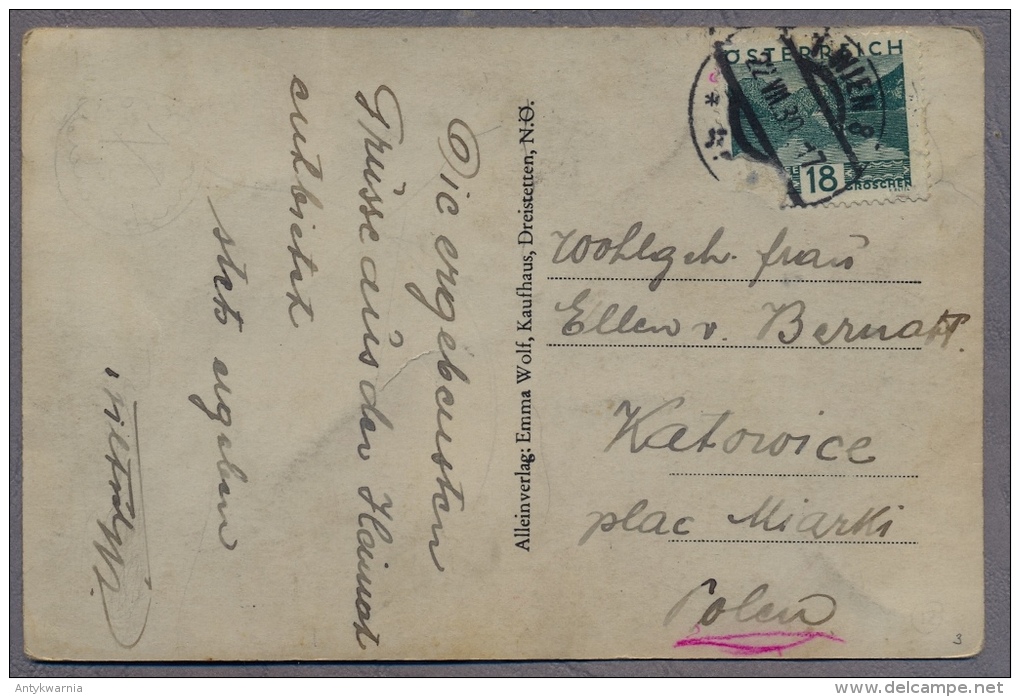 Die ergebensten
Grüsse aus der Heimat
entbietet
stets
Alleinverlag: Emma Wolf, Kaufhaus, Dreistetten, N.Ö.
ÖSTERREICH
18
GROSCHEN
WIEN 8
22.VII.30.-17
Wohlgeb. Frau
Ellen v. Bernatt.
Katowice
plac Miarki
Polen
3
Antykwarnia
www.delcampe.net